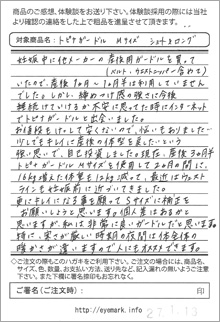 商品のご感想、体験談をお送り下さい。体験談採用の際には当社
より確認の連絡をした上で粗品を進呈させて頂きます。
対象商品名: トピナガードル Mサイズ ショート&ロング
妊娠中に他メーカーの産後用ガードルを買って
いたので、産後10ヶ月は利用していません
でした。しかし、締めつけ感の強さに今後
継続けていけるか不安に思ってた時にインターネット
でトピナガードルと出会いました。
お値段もけして安くないので、悩みもありましたが
少しでもキレイに産後の体型を良したいという
強い思いで、目を通しました。また、産後
トピナガードルMサイズを使用して2ヶ月の間に、
16kg増えた体重も12kg減って、最近はウエスト
ラインも妊娠前に近づいてきました。
更にキレイになる事を願ってSサイズに補正を
お願いしようと思います。個人差はあるかと
思いますが、私は非常に良いガードルだと思います。
特に、寒さが厳しい時期の夜間は
暖かさが違いますので人にもオススメできます。
◎ご注文の際もこのハガキをご利用下さい。ご注文の場合には、商品名、
サイズ、色、数量、お支払い方法、送り先など、記入漏れの無いようご注意
下さい。また下欄に署名捺印もお忘れなく。
◎ご署名（ご注文時）： 印
http://eyemark.info
27.1.13